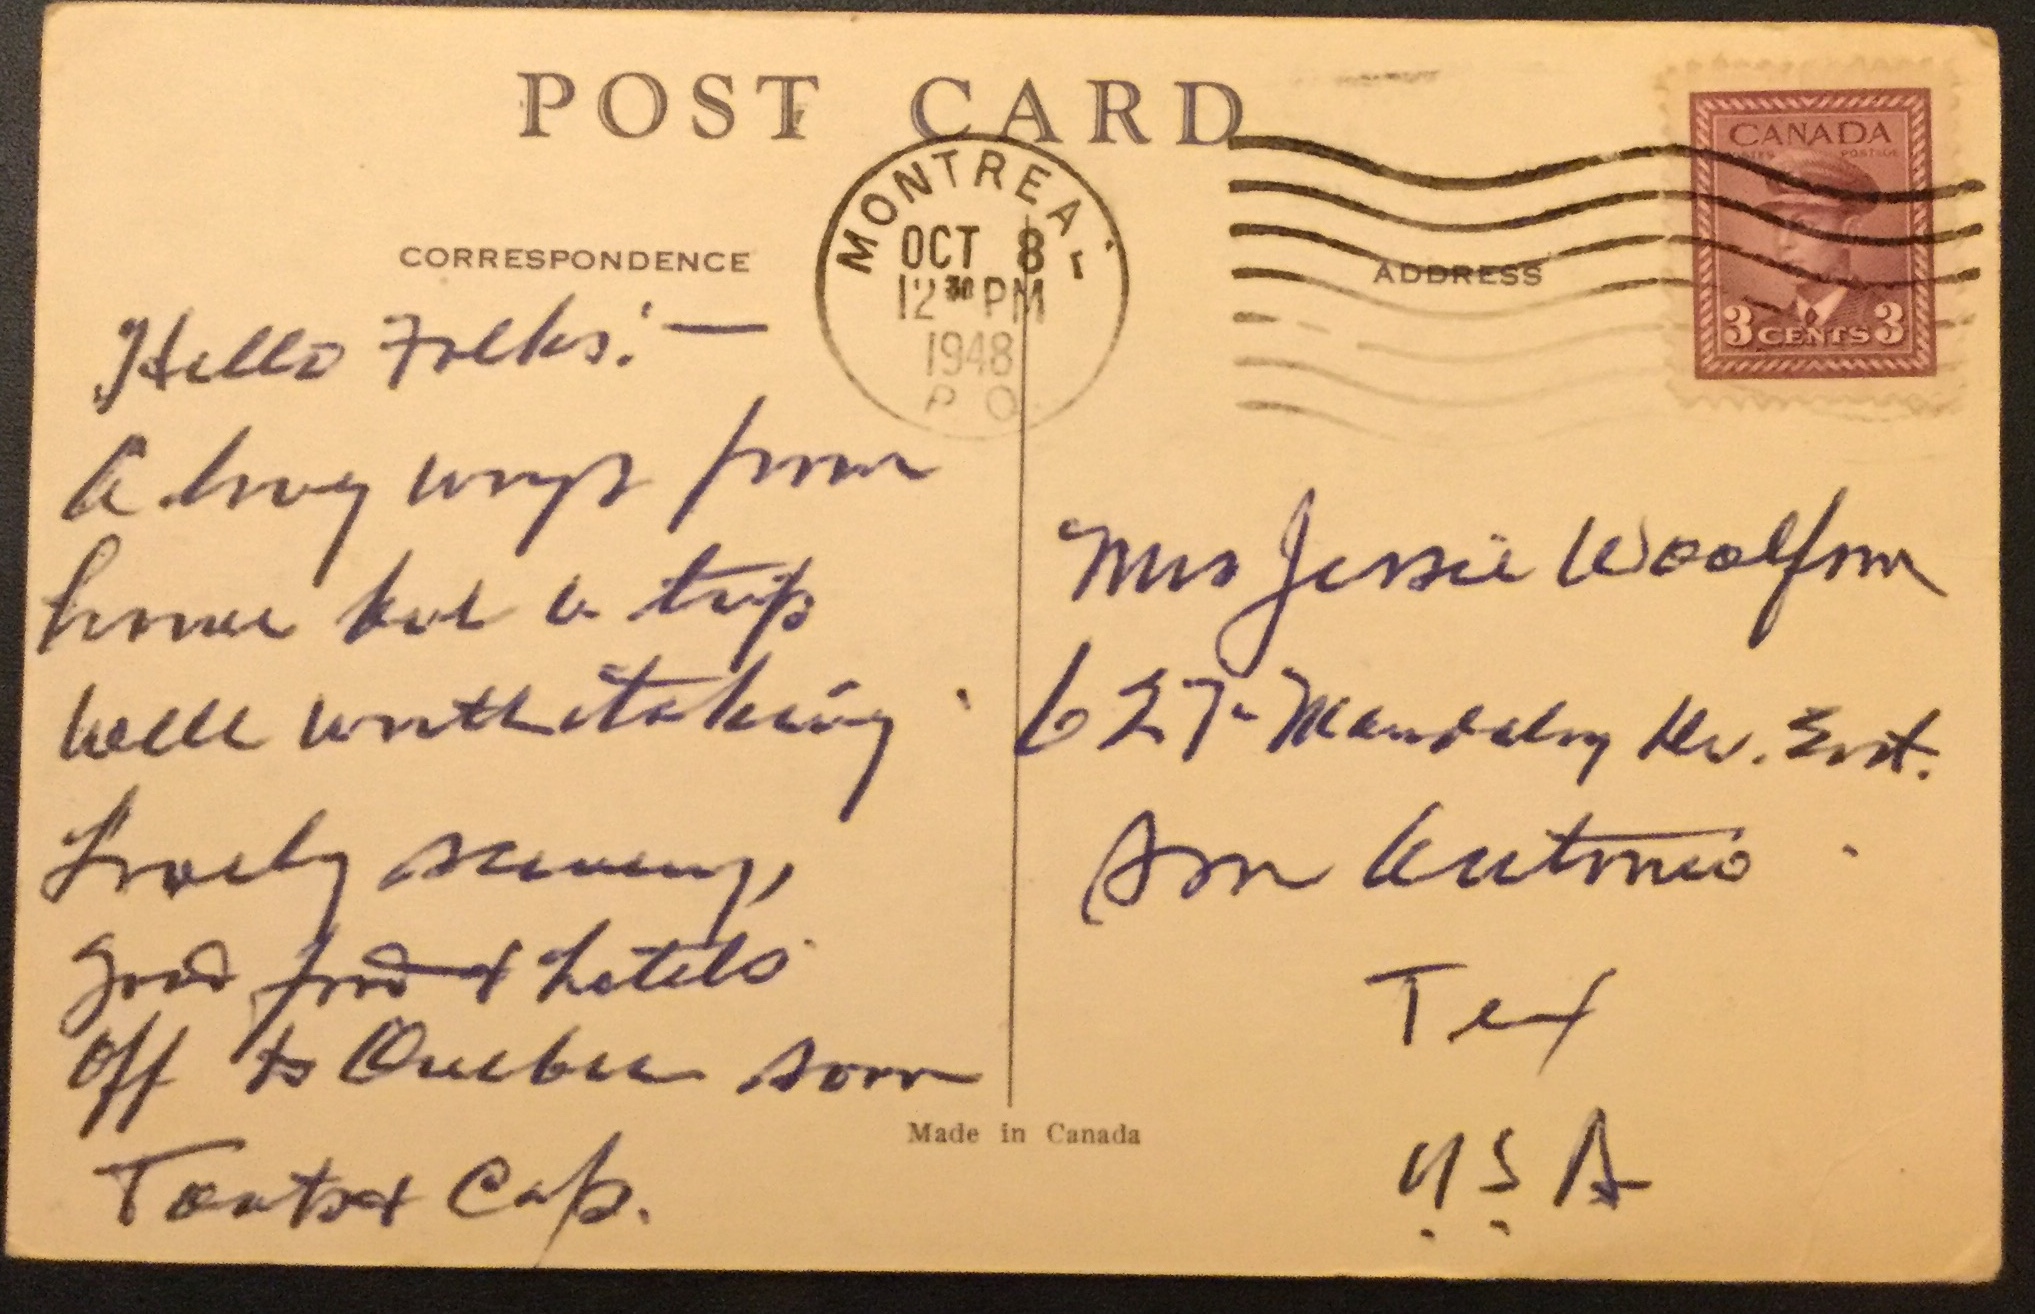 POST CARD
CORRESPONDENCE
MONTREAL
OCT 8
12 30 PM
1948
P O
ADDRESS
CANADA
POSTES POSTAGE
3 CENTS 3
Hello Folks: —
A long ways from
home but a trip
well worth taking.
Lovely scenery,
good food & hotels
Off to Quebec soon
Toots & Cap.
Mrs Jessie Woolfson
627 - Mandalay Dr. East.
San Antonio
Tex
U.S.A
Made in Canada